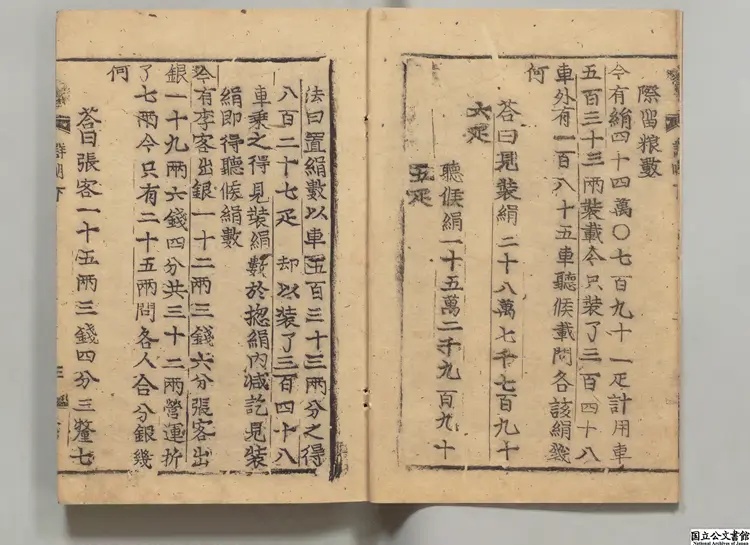 際留粮數
今有絹四十四萬〇七百九十一疋計用車
五百三十三兩裝載今只裝了三百四十八
車外有一百八十五車聽候載問各該絹幾
何
荅曰見裝絹二十八萬七千七百九十
六疋
聽候絹一十五萬二千九百九十
五疋
法曰置絹數以車五百三十三兩分之得
八百二十七疋 却以裝了三百四十八
車乘之得見裝絹數於揔絹內减訖見裝
絹即得聽候絹數
今有李客出銀一十二兩三錢六分張客出
銀一十九兩六錢四分共三十二兩營運折
了七兩今只有二十五兩問各人合分銀幾
何
荅曰張客一十五兩三錢四分三釐七
国立公文書館
National Archives of Japan